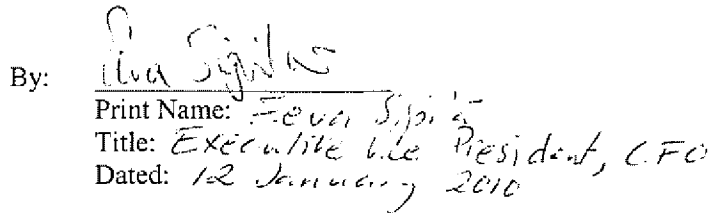 By: Eeva Sipilä
Print Name: Eeva Sipilä
Title: Executive Vice President, CFO
Dated: 12 January 2010